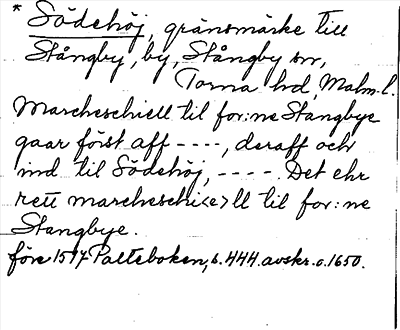 * Södehöj, gränsmärke till
Stångby, by, Stångby sn,
Torna hd, Malm. l.
Marcheschiell til for:ne Stangbye
gaar först aff ----, deraff och
ind til Södehöj, ----. Det ehr
rett marcheschi<e>ll til for:ne
Stangbye.
före 1597 Palteboken, s. 444. avskr. o. 1650.